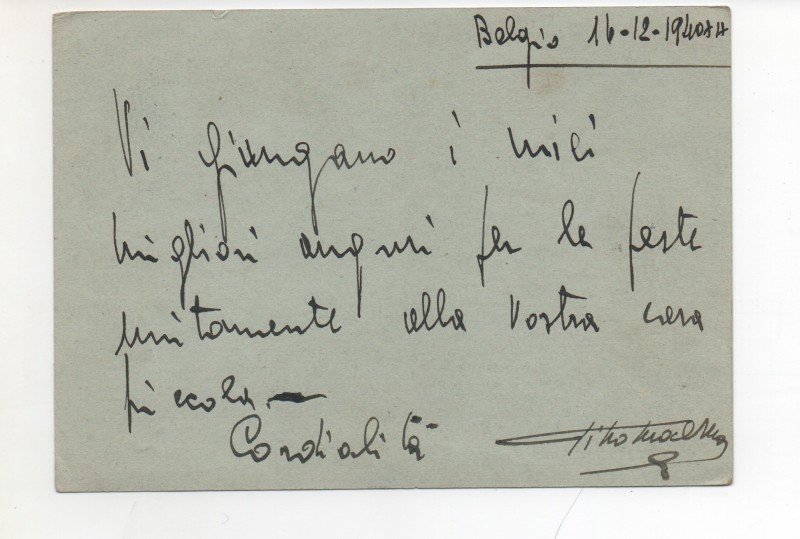 Belgio 16-12-1940
Vi giungano i miei
migliori auguri per le feste
unitamente alla Vostra cara
piccola.
Cordialità
Tito